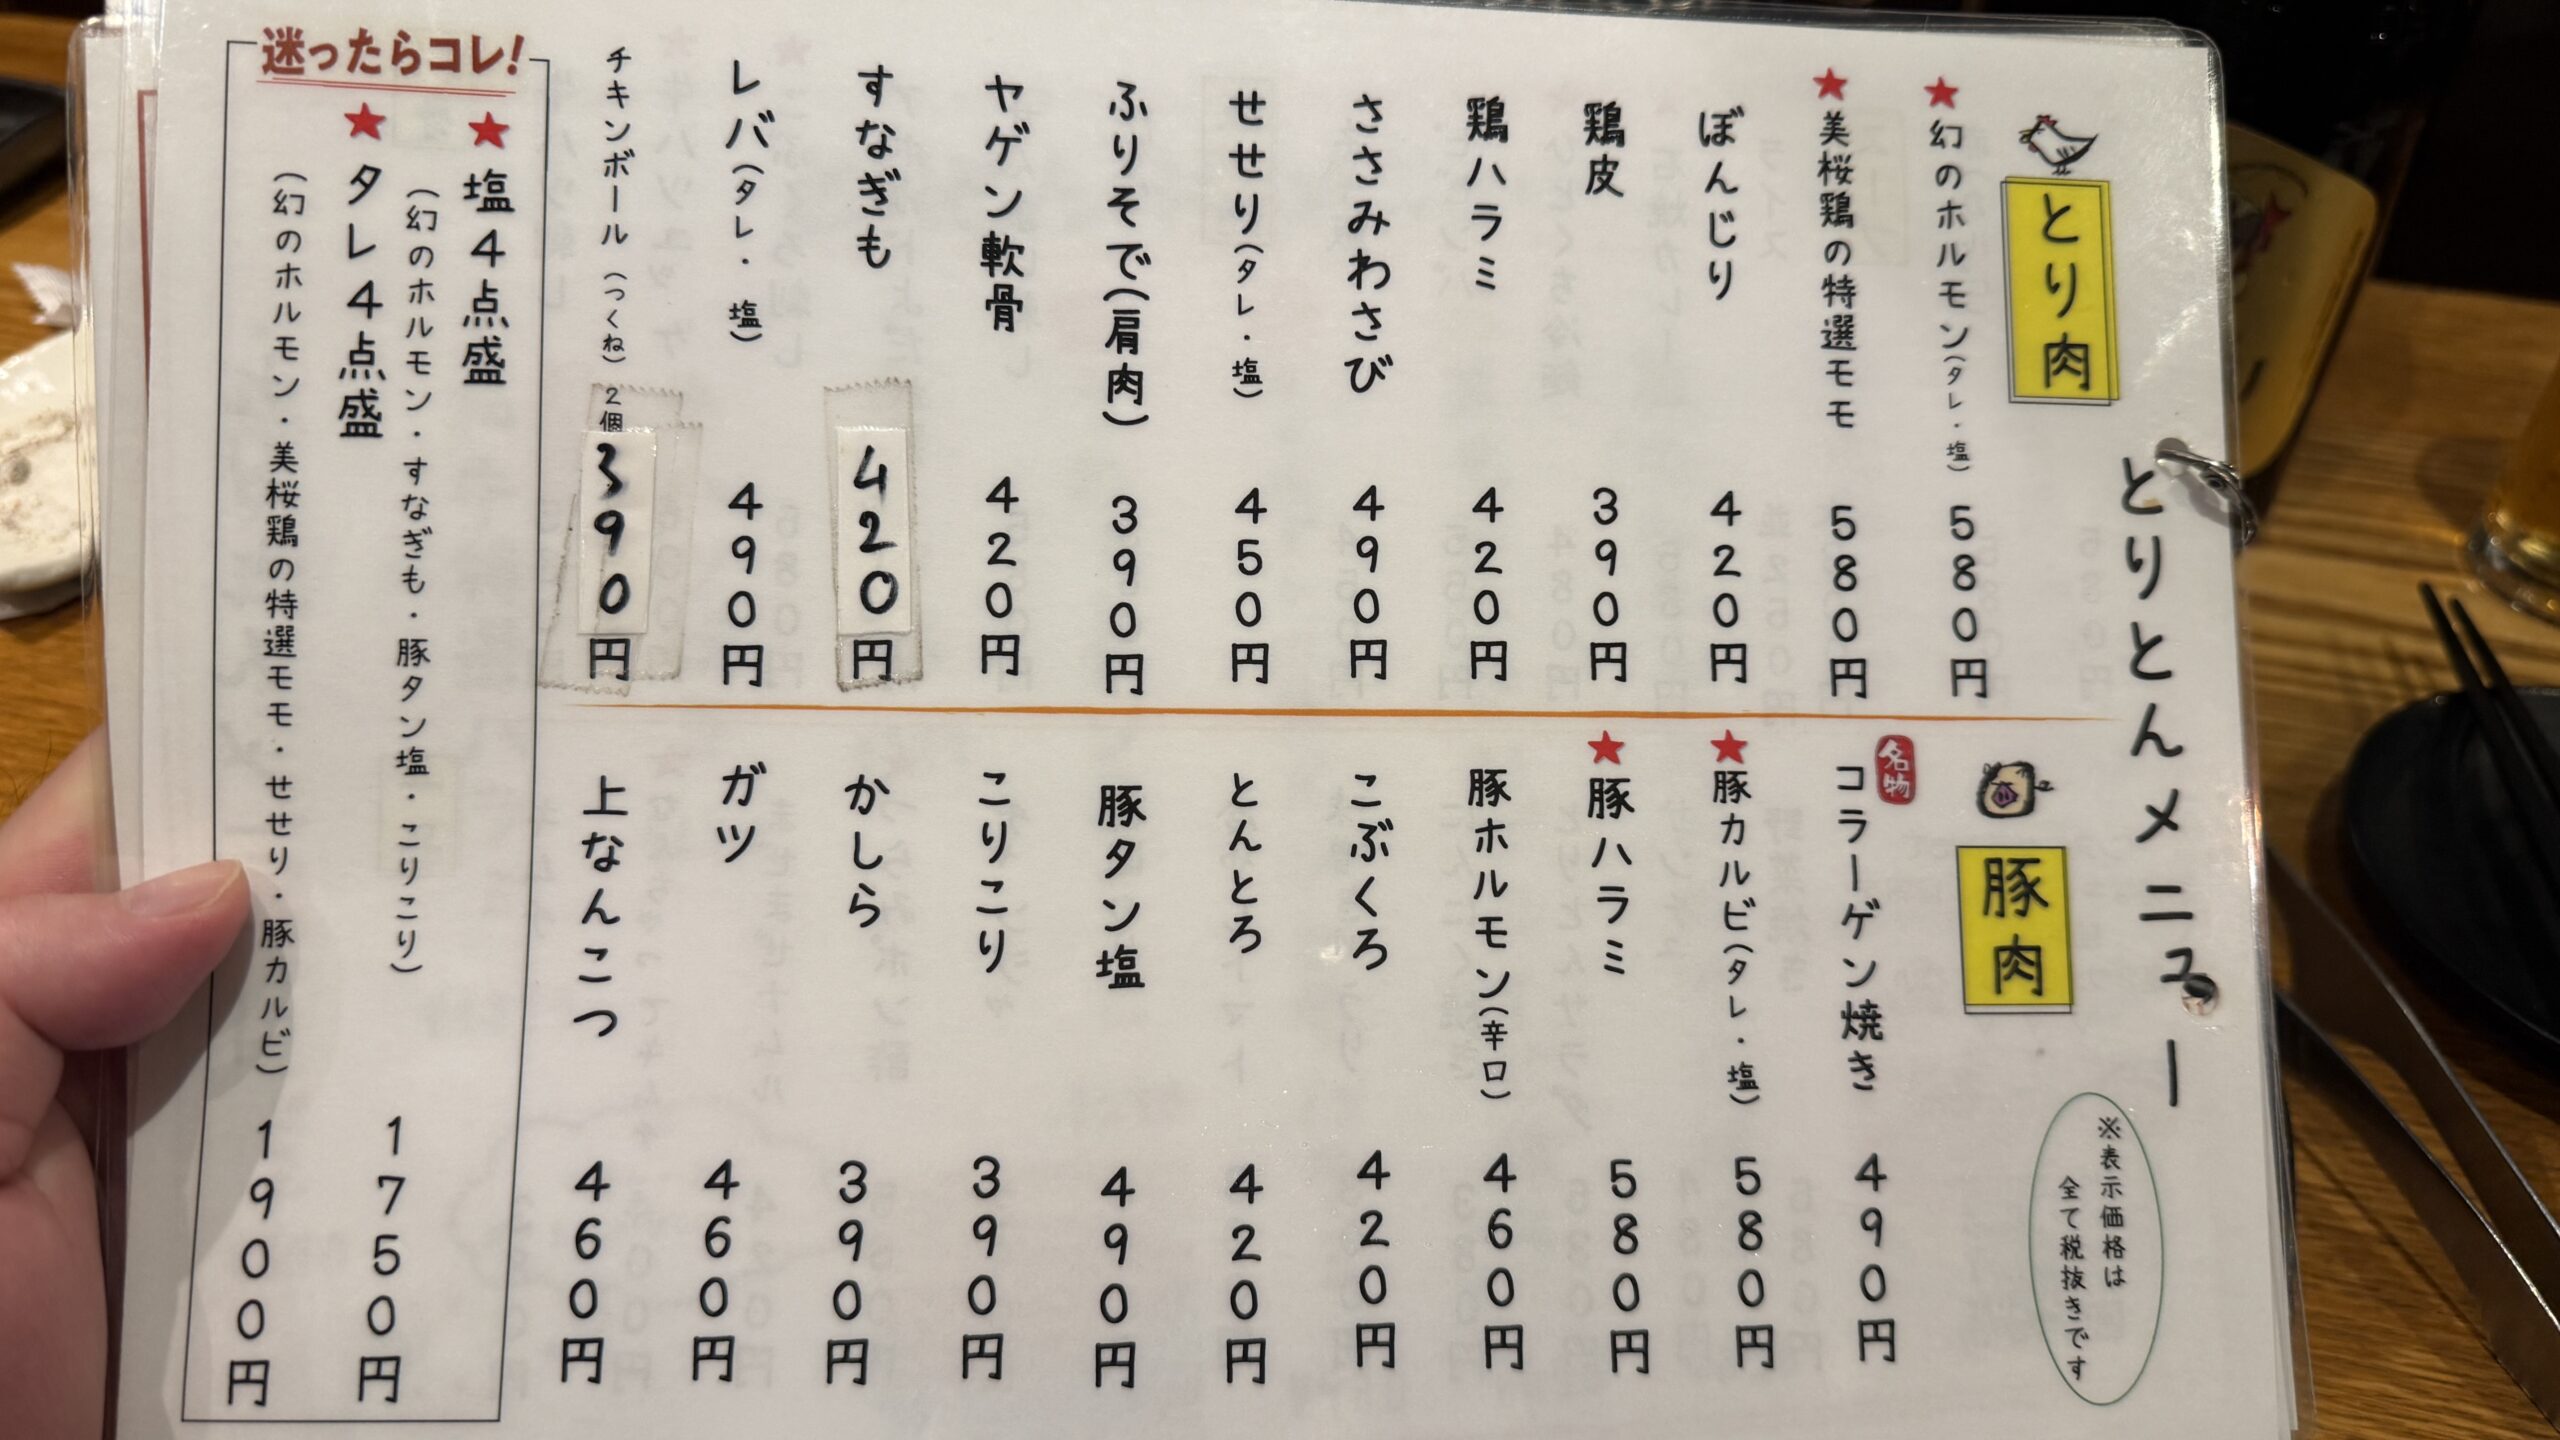 とりとんメニュー
※表示価格は
全て税抜きです
とり肉
★幻のホルモン(タレ・塩) 580円
★美桜鶏の特選モモ 580円
ぼんじり 420円
鶏皮 390円
鶏ハラミ 420円
ささみわさび 490円
せせり(タレ・塩) 450円
ふりそで(肩肉) 390円
ヤゲン軟骨 420円
すなぎも 420円
レバ(タレ・塩) 490円
チキンボール(つくね)2個 390円
豚肉
名物
コラーゲン焼き 490円
★豚カルビ(タレ・塩) 580円
★豚ハラミ 580円
豚ホルモン(辛口) 460円
こぶくろ 420円
とんとろ 420円
豚タン塩 490円
こりこり 390円
かしら 390円
ガツ 460円
上なんこつ 460円
迷ったらコレ!
★塩4点盛
(幻のホルモン・すなぎも・豚タン塩・こりこり) 1750円
★タレ4点盛
(幻のホルモン・美桜鶏の特選モモ・せせり・豚カルビ) 1900円